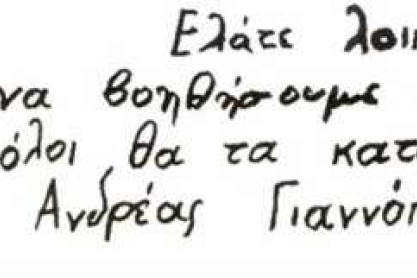 Ελάτε λοι
να βοηθήσουμε
όλοι θα τα κατ
Ανδρέας Γιαννό